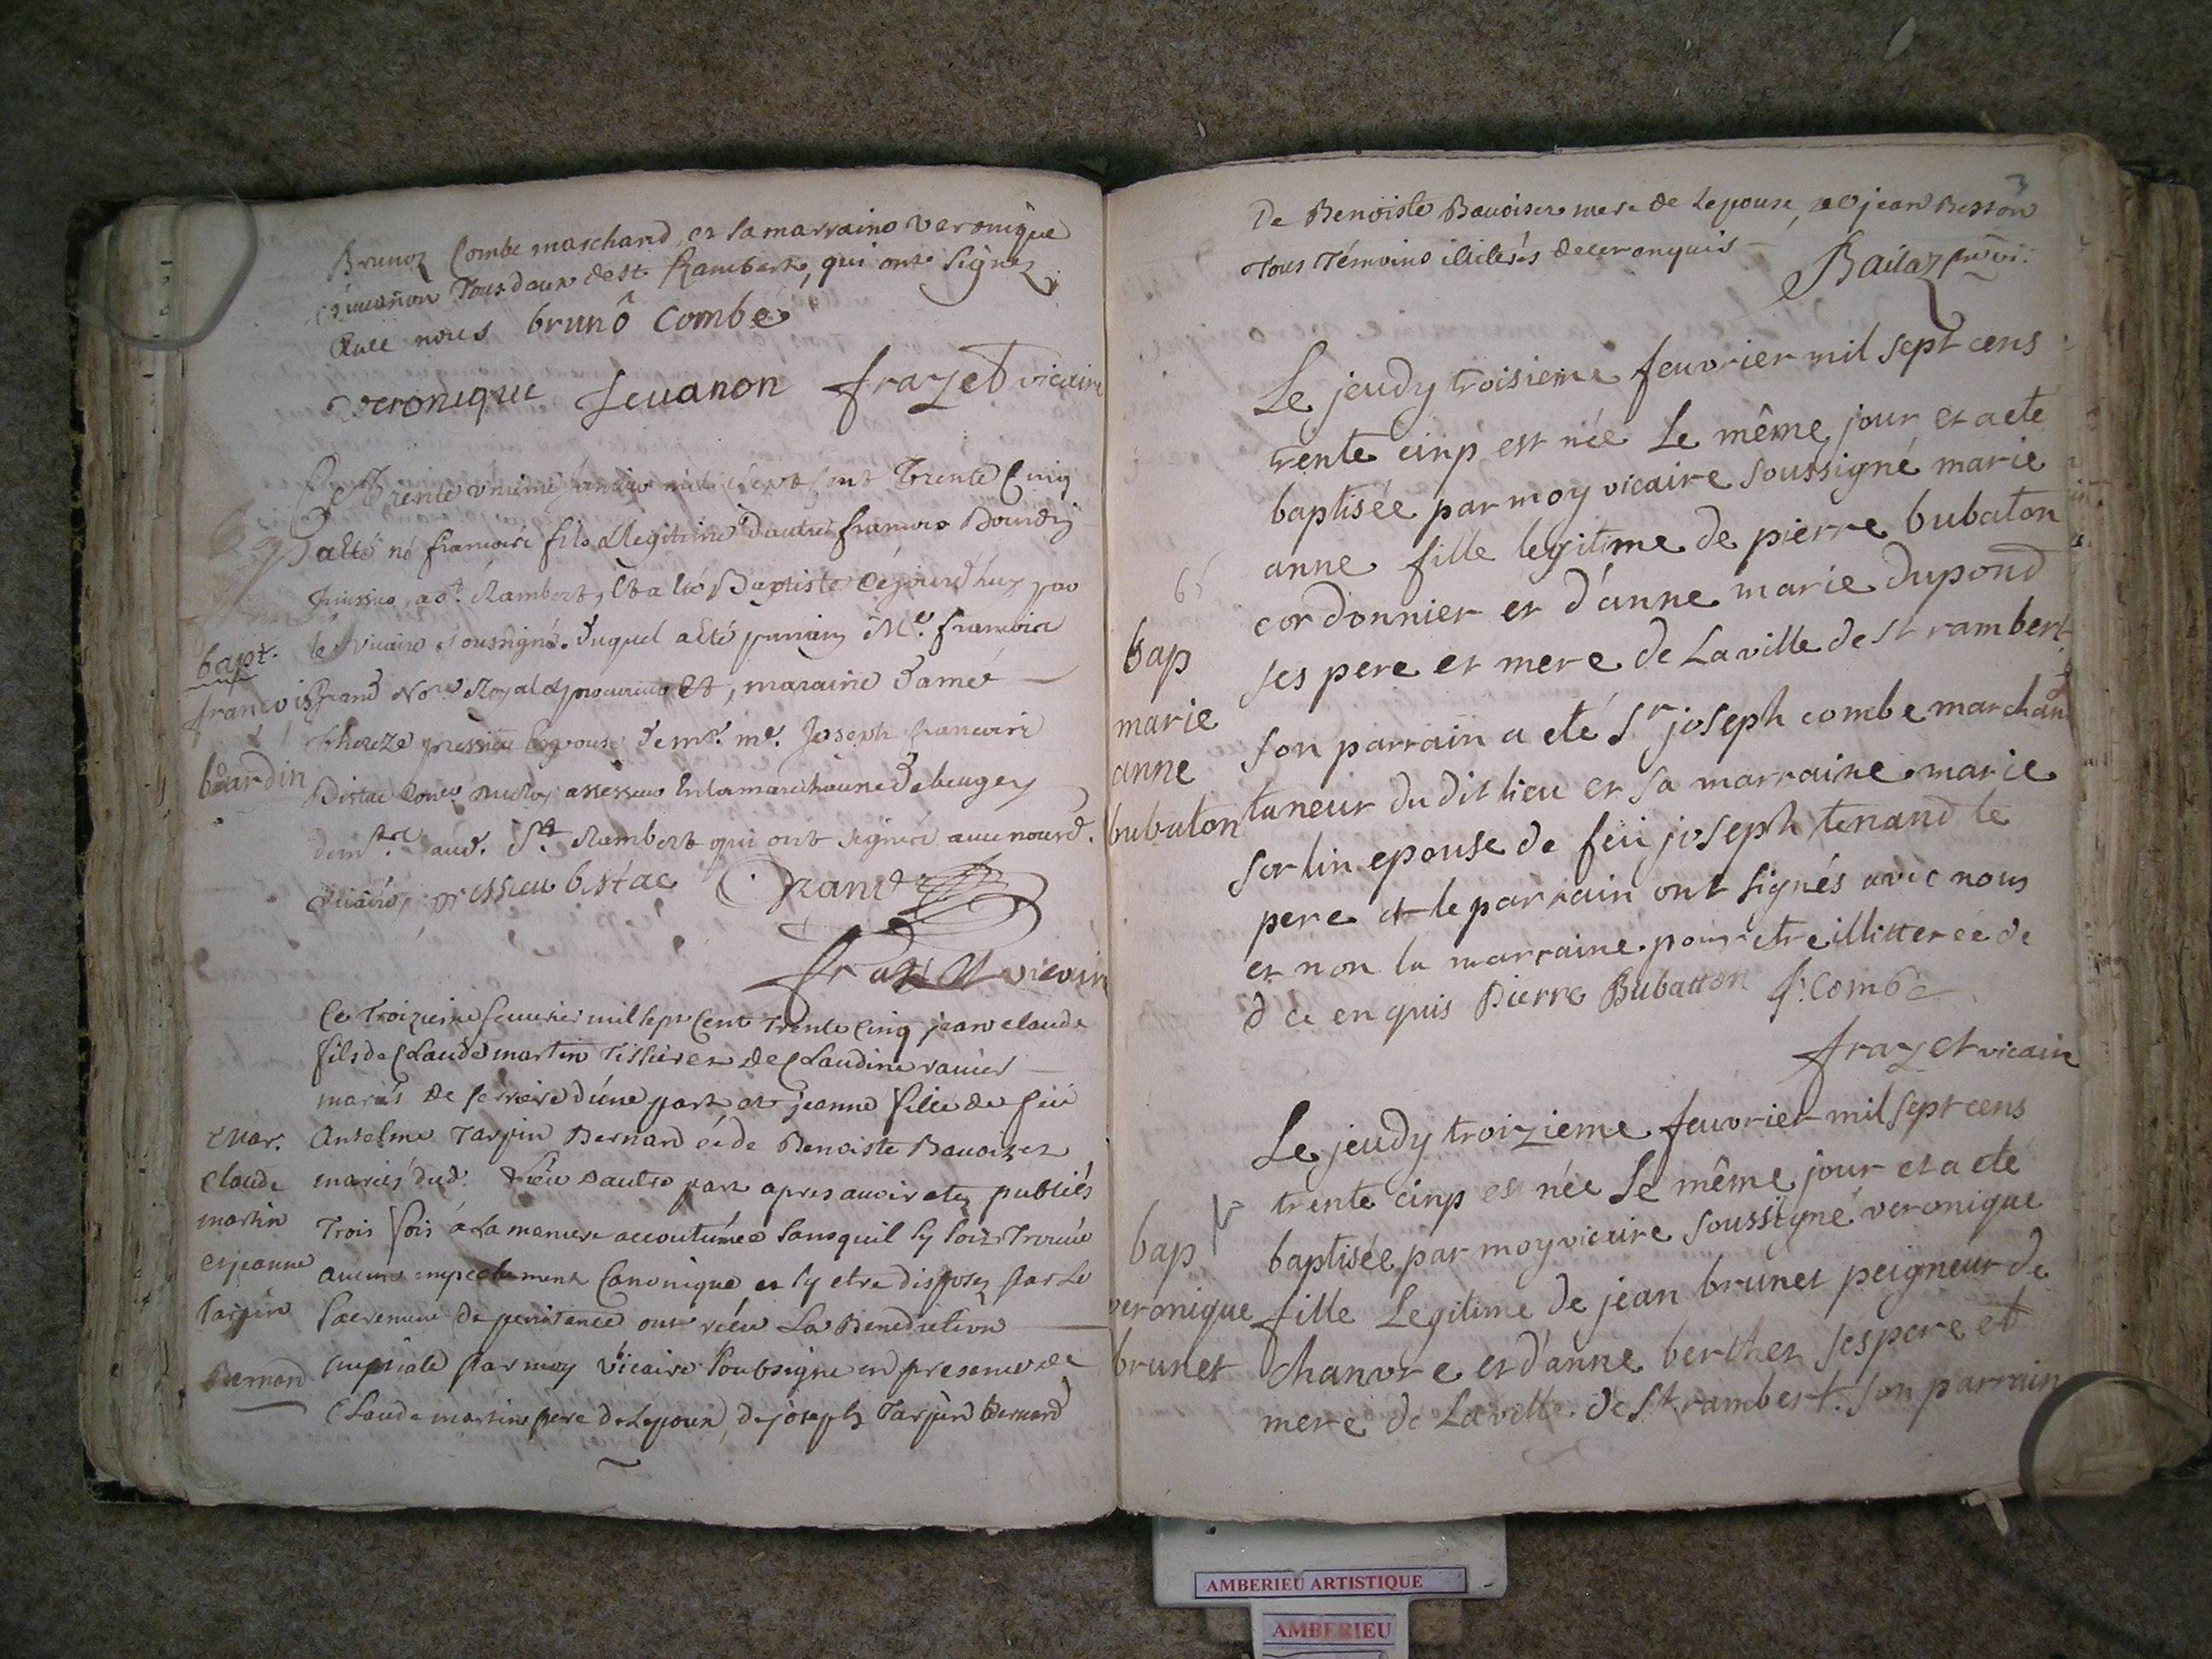 Brunoz Combe marchand, et la marraine veronique
Jeuanon Tous deux de st Rambert, qui ont signez
Auec nous brunô combe
veronique Jeuanon frazet vicaire
Le Trente vnieme janvier mil sept cent Trente Cinq
a esté né francois fils Legitime d'autre francois Bourdin
a st. Rambert, et a esté Baptisté cejourd'huy par
le vicaire soussigné. Duquel a esté parrain Me. francois
bapt.
francois
bourdin
Grand Nore. Royal & procureur et, maraine Dame
thereze pressieu Espouse de mr. me. Joseph francois
Distac assesseur En la marechaussée De beugey
aud. St. Rambert qui ont signéz auec nous d.
vicaire, pressieu bistac Grand
frazet vicaire
Ce Troizieme feuurier mil sept Cent Trente Cinq jean claude
fils de Claude martin Tissier et de Claudine rauier
mariés de serriere d'une part et jeanne fille de feü
mar.
Claude
martin
et jeanne
Tarpin
Bernard
Anselme Tarpin Bernard & de Benoiste Bauoizet
mariés dud. Lieu d'autre part apres auoir etez publiés
Trois fois á La maniere accoutumée sans quil sy soit Trouué
aucun empechement Canonique et sy etre disposez par Le
sacrement De penitence ont recu La Benediction
nuptiale par moy vicaire soubsigné en presence de
Claude martin pere de Lepoux, de joseph Tarpin Bernard
3
De Benoiste Bauoiset mere de Lepouse, & jean Besson
Tous Témoins illiterés de ce enquis
Bailaz
Le jeudy troisieme feuvrier mil sept cens
trente cinp est née Le même jour et a ete
baptisée par moy vicaire soussigné marie
anne fille legitime de pierre bubaton
cordonnier et d'anne marie dupond
ses pere et mere de La ville de st rambert.
bap
marie
anne
bubaton
son parrain a eté Sr joseph combe marchand
taneur du dit lieu et sa marraine marie
sorlin epouse de feü joseph tenand le
pere et le parrain ont signés avec nous
et non la marraine pour etre illitterée de
d ce enquis Pierre Bubatton J. Combe
frazet vicaire
Le jeudy troizieme feuvrier mil sept cens
trente cinp est née Le même jour et a eté
baptisée par moy vicaire soussigné veronique
bap
veronique
brunet
fille Legitime de jean brunet peigneur de
chanvre et d'anne berthet ses pere et
mere de La ville de St rambert. son parrain
AMBERIEU ARTISTIQUE
AMBERIEU